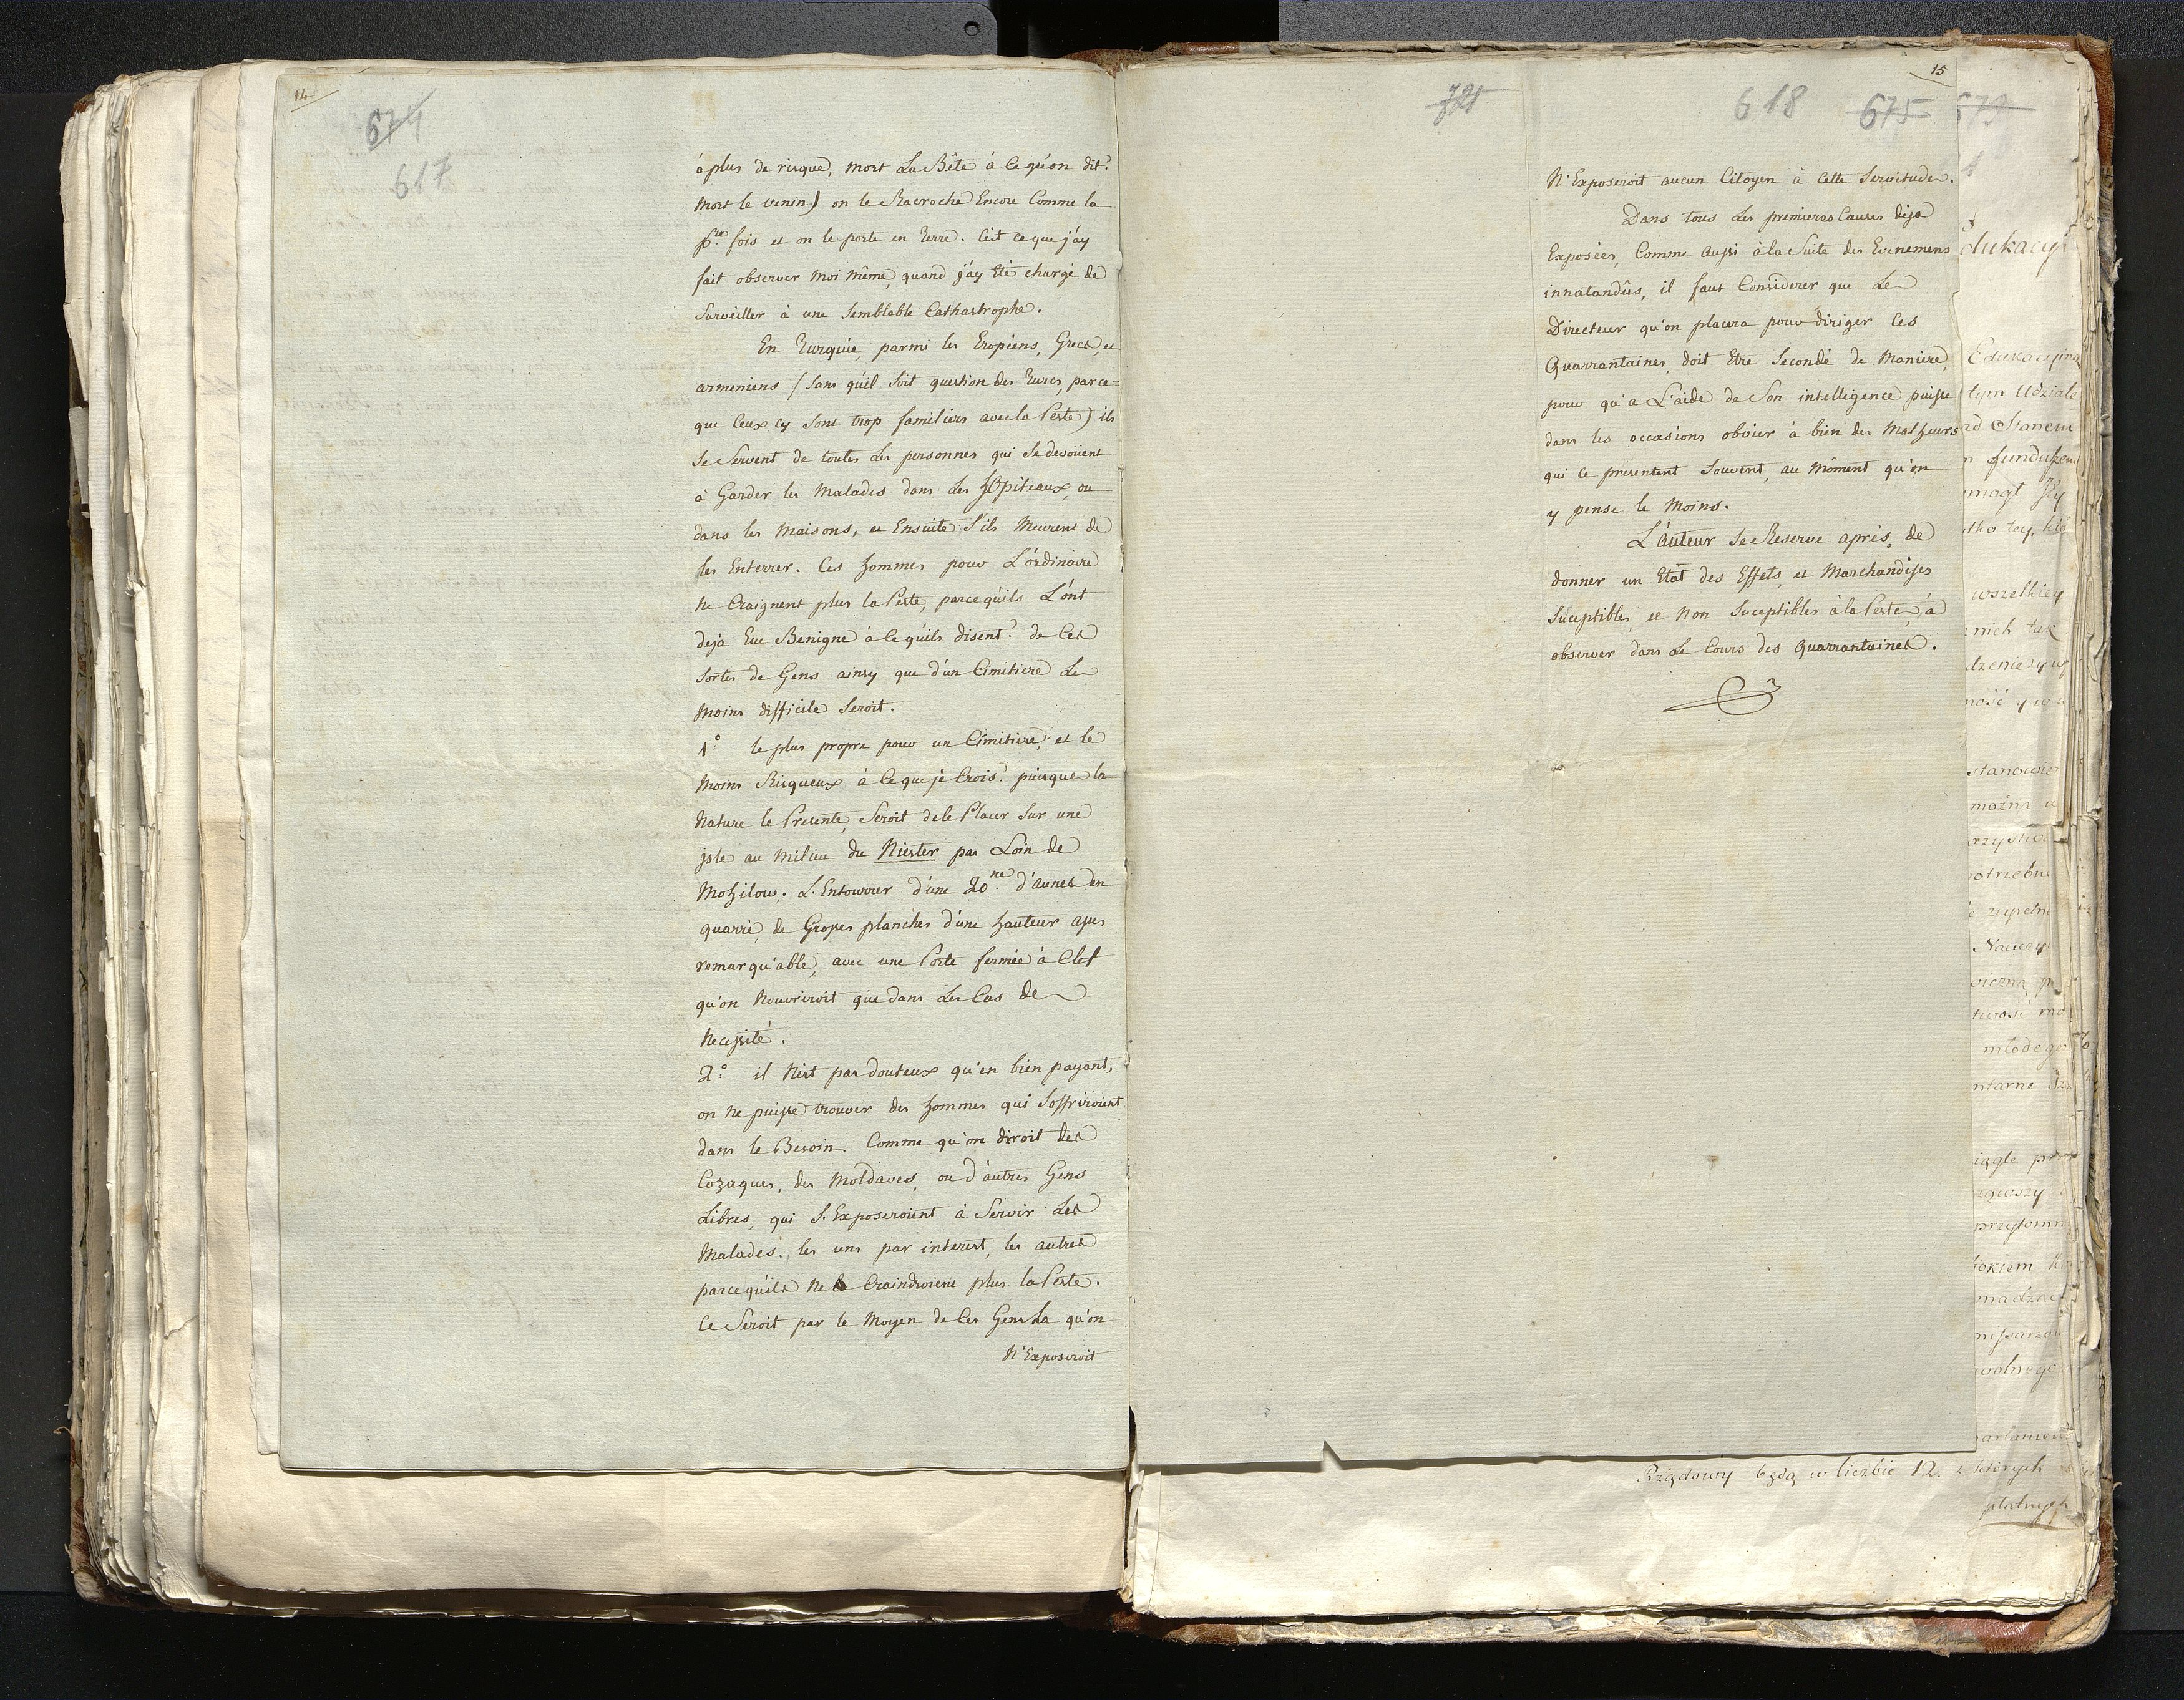 14
674
617
à plus de risque, mort La Bête à ce qu'on dit?
mort le venin) on le Racroche Encore Comme la
p.re fois et on le porte en Terre. C'est ce que j'ay
fait observer moi même, quand j'ay Eté chargé de
Surveiller à une Semblable Cathastrophe.
En Turquie, parmi les Eropiens, Grecs, et
armeniens (Sans qu'il Soit question des Turcs, parce=
que Ceux cy Sont trop familiers avec la Peste) ils
Se Servent de toutes Les personnes qui Se devoüent
à Garder les Malades dans Les hôpiteaux, ou
dans les Maisons, et Ensuite S'ils Meurent de
les Enterrer. Ces hommes pour L'ordinaire
ne Craignent plus la Peste, parcequ'ils L'ont
deja Eue Benigne à ce qu'ils disent? de Ces
Sortes de Gens ainsy que d'un Cimitiere Le
moins difficile Seroit.
1.° le plus propre pour un Cimitiere, et le
moins Risqueux à Ce que je Crois? puisque la
Nature le Presente, Seroit de le Placer Sur une
jsle au milieu du Niester pas Loin de
Mohilow. L'Entourrer d'une 20.ne d'aunes en
quarré, de Grosses planches d'une hauteur assés
remarqu'able, avec une Porte fermée à Clef
qu'on Nouvriroit que dans Les Cas de
Necessité.
2.° il N'est pas douteux qu'en bien payant,
on ne puisse trouver des hommes qui S'offriroient
dans le Besoin. Comme qu'on diroit des
Cozaques, des Moldaves, ou d'autres Gens
Libres, qui S'Exposeroient à Servir Les
Malades. les uns par interest, les autres
parcequ'ils ne Craindroient plus la Peste.
Ce Seroit par le Moyen de Ces Gens La qu'on
N'Exposeroit
15
721
618 675 673
N'Exposeroit aucun Citoyen à Cette Servitude.
Dans tous Les premieres Causes deja
Exposées, Comme aussi à la Suite des Evenemens
innatandûs, il faut Considerer que Le
Directeur qu'on placera pour diriger Ces
Quarrantaines, doit Etre Secondé de Maniere,
pour qu'a L'aide de Son intelligence puisse
dans les occasions obvier à bien des Malheurs
qui Ce presentent Souvent, au Môment qu'on
y pense le Moins.
L'auteur Se Reserve après, de
donner un Etat des Effets, et Marchandises
Suceptibles, et Non Suceptibles à la Peste, à
observer dans Le Cours des Quarrantaines.
dukacyi
Edukacyina
tym Udziale
fundusze
wszelkiey
nich tak
można
młodego
wolnego
Rządowy będą w liczbie 12. z których
płatnych